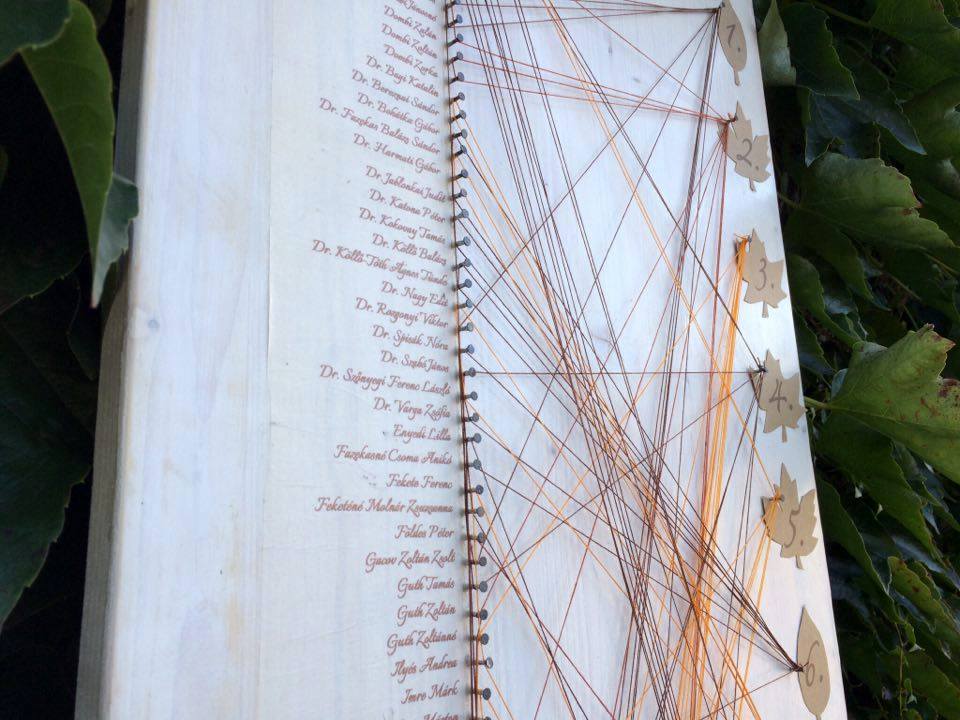 Dombi Zoltán
Dombi Zoltán
Dombi Zsófia
Dr. Bagi Katalin
Dr. Boroznai Sándor
Dr. Bohátka Gábor
Dr. Fazekas Balázs Sándor
Dr. Harmati Gábor
Dr. Jablonkai Judit
Dr. Katona Péter
Dr. Kokovay Tamás
Dr. Kölló Balázs
Dr. Kölló-Tóth Ágnes Tünde
Dr. Nagy Edit
Dr. Rozgonyi Viktor
Dr. Spisák Nóra
Dr. Szabó János
Dr. Szűnyogi Ferenc László
Dr. Varga Zsófia
Enyedi Lilla
Fazekasné Csoma Anikó
Fekete Ferenc
Feketéné Molnár Zsuzsanna
Földes Péter
Gacov Zoltán Zsolt
Guth Tamás
Guth Zoltán
Guth Zoltánné
Ilyés Andrea
Imre Márk
1.
2.
3.
4.
5.
6.